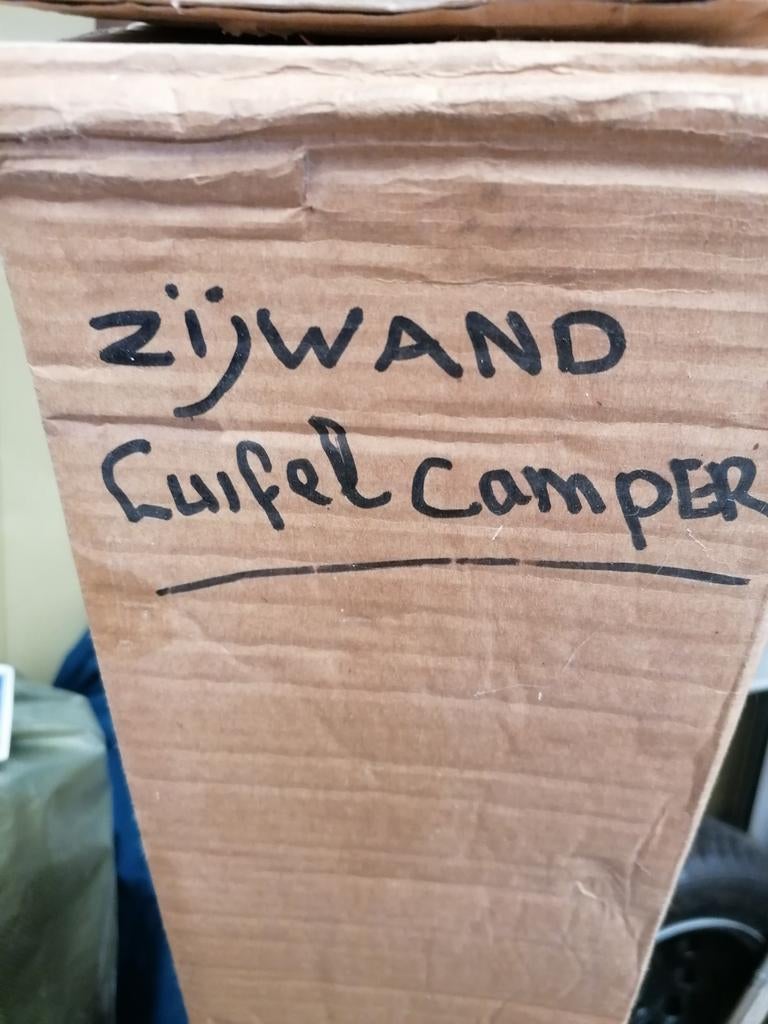 zijWAND
Luifel CamPER